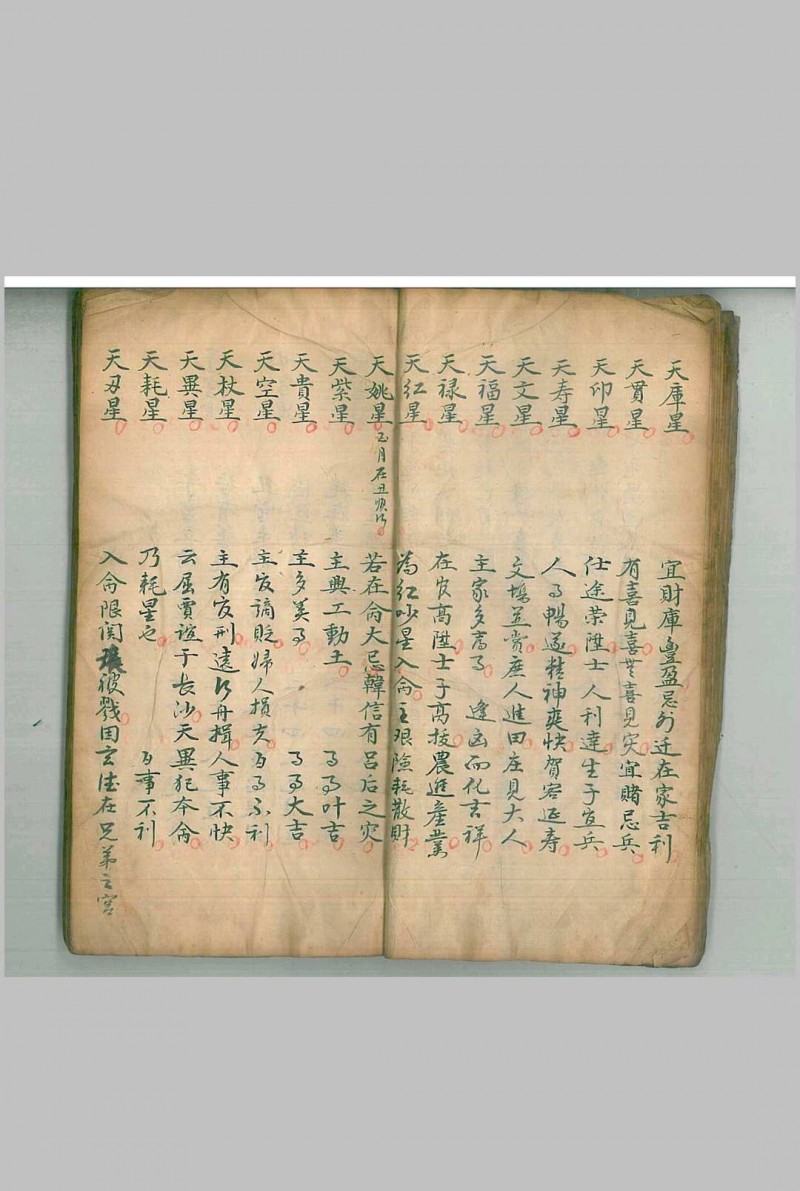 天庫星 宜財庫豐盈忌行迁在家吉利
天貫星 有喜見喜無喜見灾宜賭忌兵
天印星 仕途荣陞士人利達生子宜兵
天寿星 人事暢遂精神爽快賀客延寿
天文星 文塲並赏庶人進田庄見大人
天福星 主家多喜事 逢凶而化吉祥
天禄星 在官高陞士子高拔農進产業
天红星 為红吵星入命主艰險耗散財
天姚星 正月在丑順行 若在命大忌韓信有吕后之灾
天紫星 主興工動土 事事叶吉
天貴星 主多美事 事事大吉
天空星 主官謫貶婦人損克百事不利
天杖星 主有官刑遠行舟揖人事不快
天異星 云屈賈誼于长沙天異犯本命
天耗星 乃耗星也 百事不利
天刃星 入命限関 彼戮因玄法在兄弟之宮